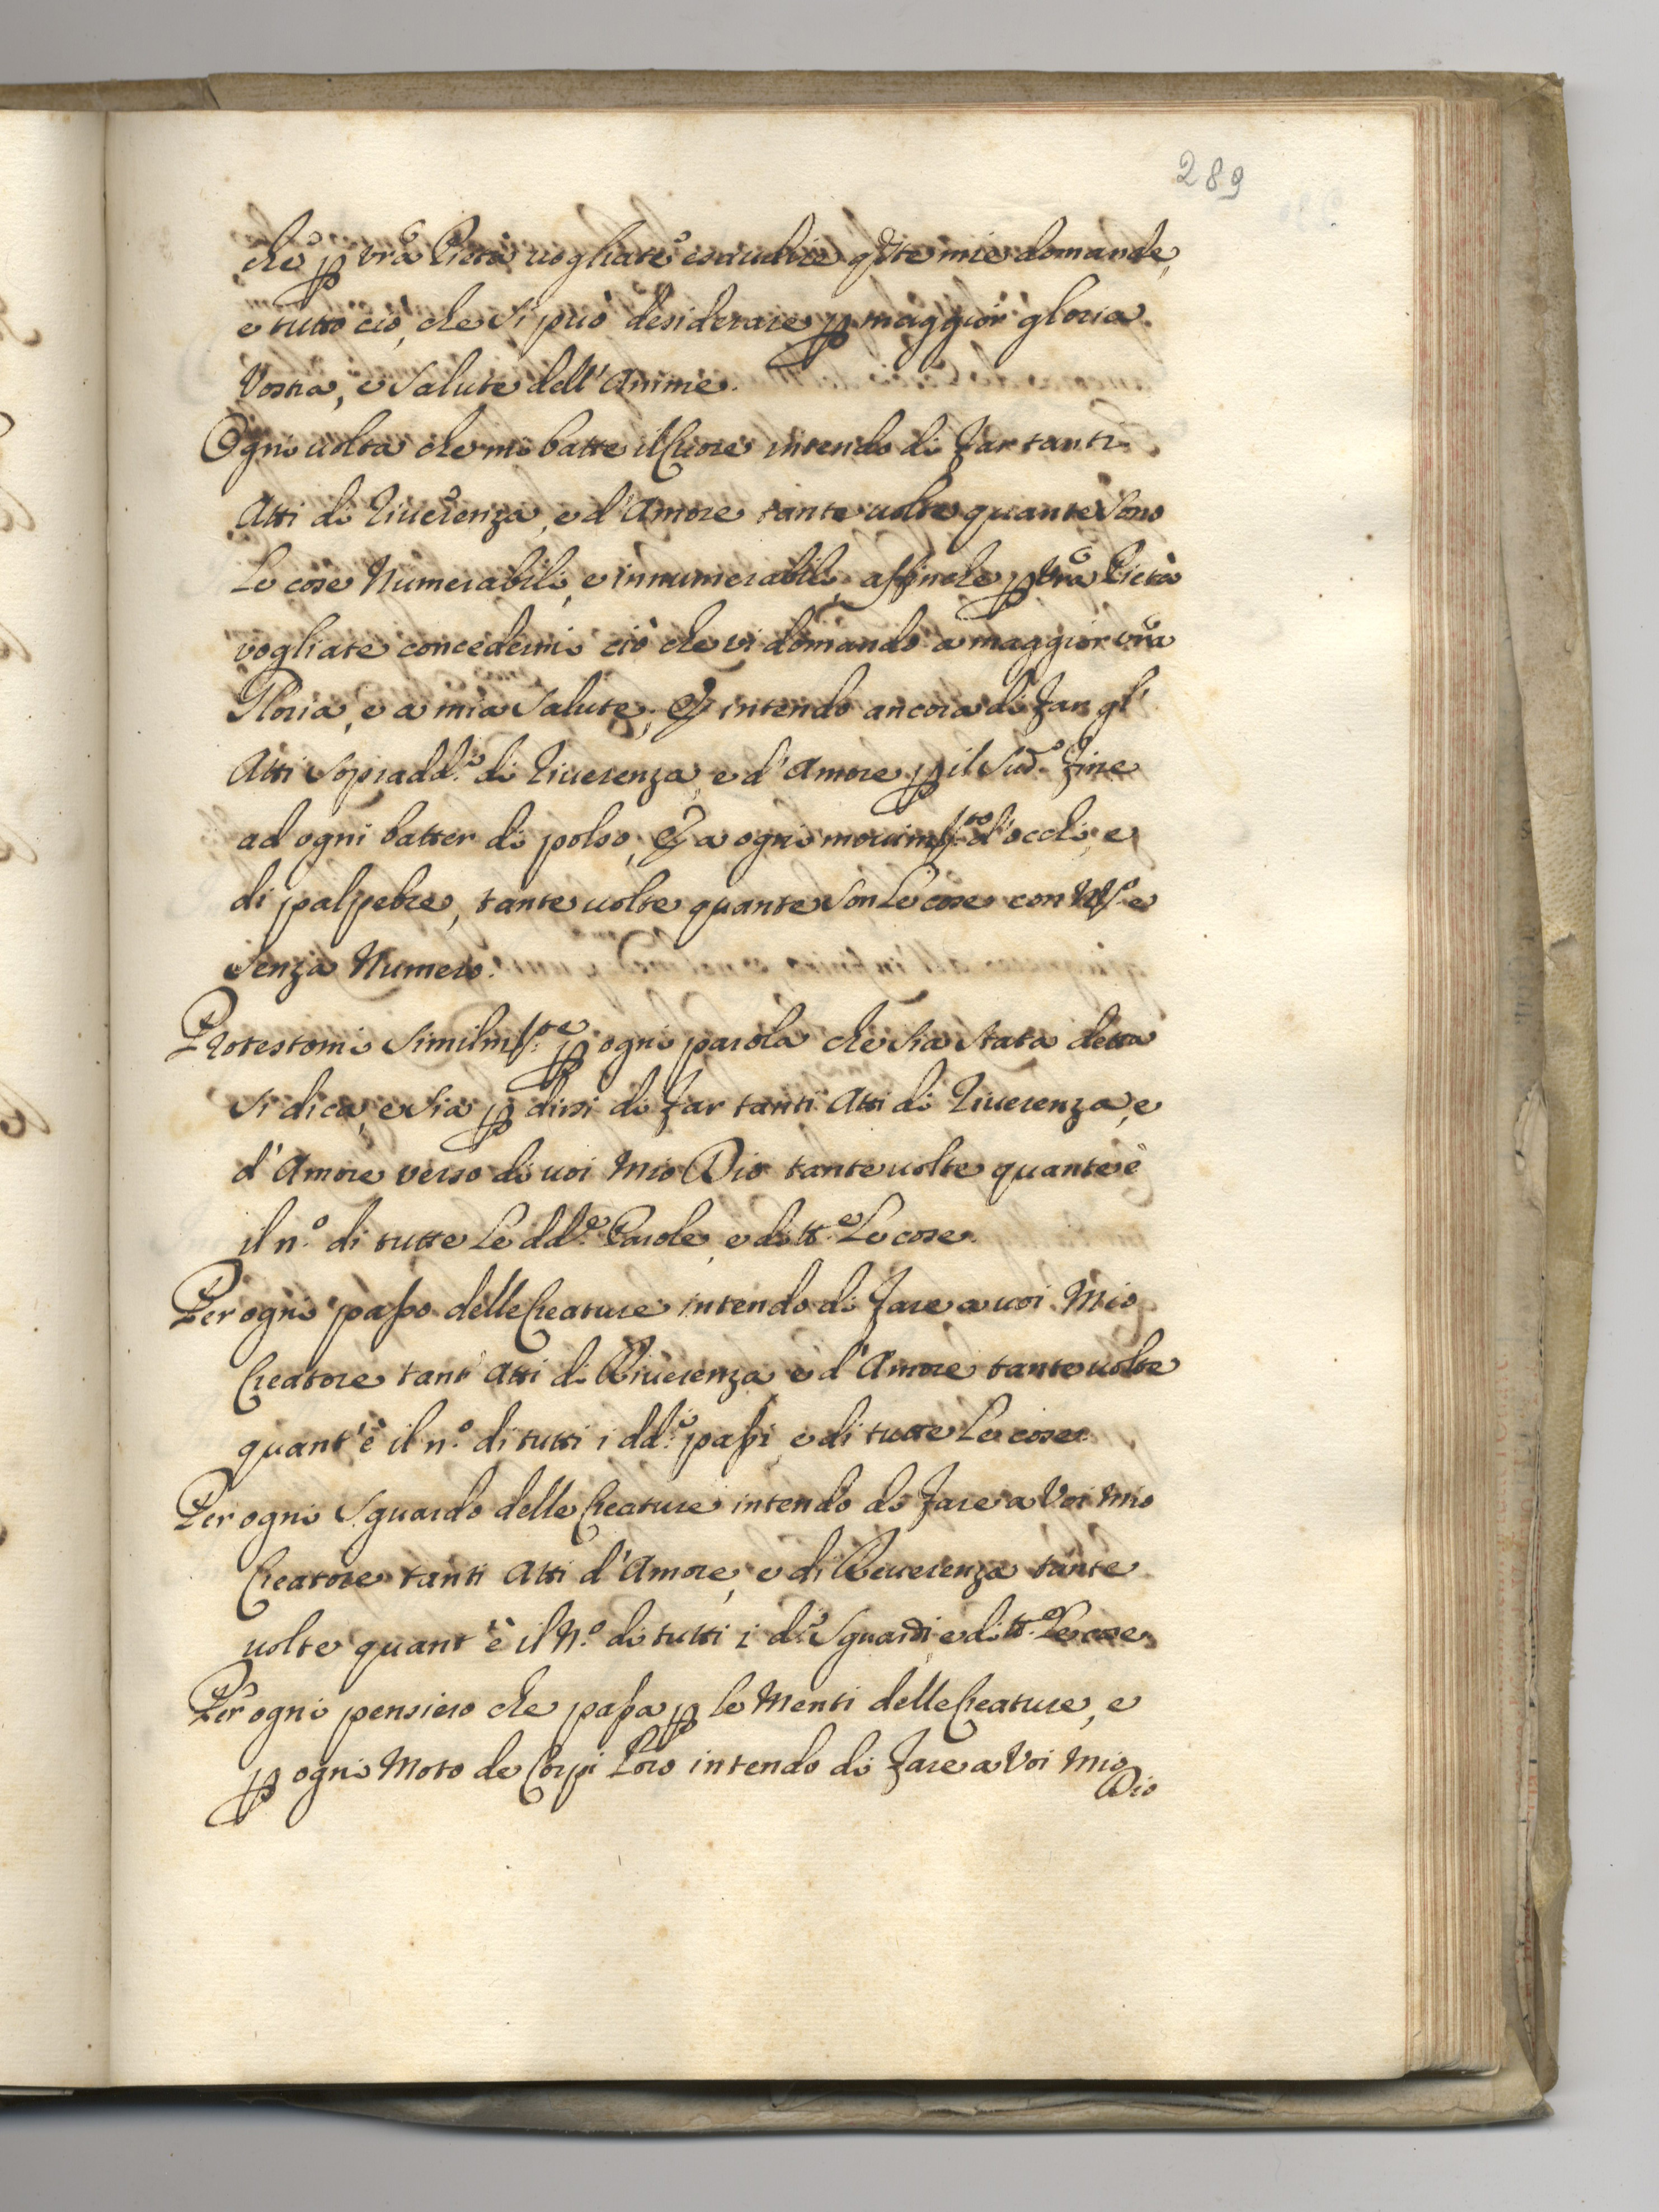 289
che p vr̃a Pietà uogliate esaudire q̃ste mie domande,
e tutto ciò, che si può desiderare p maggior gloria
Vostra, e salute dell'Anime.
Ogni uolta che mi batte il Cuore intendo di far tanti
Atti di riuerenza, e d'Amore tante uolte quante sono
Le cose Numerabili, e innumerabili, affinche p Vr̃a Pietà
vogliate concedermi ciò che vi domando a maggior vr̃a
Gloria, e a mia salute; Et intendo ancora di far gl'
Atti sopradd.i di riuerenza, e d'Amore p il sud.o fine
ad ogni batter di polso, Et a ogni mouim.to d'occhi, e
di palpebre, tante uolte quante son Le cose con N.o e
senza Numero.
Protestomi similm.te p ogni parola che sia stata detta
si dica, e sia p dirsi di far tanti Atti di riuerenza, e
d'Amore verso di uoi Mio Dio tante uolte quante è
il n.o di tutte Le dd.e Parole, e di tt.e Le cose.
Per ogni passo delle Creature intendo di fare a uoi Mio
Creatore tant' Atti di Riuerenza, e d'Amore tante uolte
quant'è il n.o di tutti i dd.i passi, e di tutte Le cose.
Per ogni sguardo delle Creature intendo di fare a Voi Mio
Creatore tanti Atti d'Amore, e di Reuerenza tante
uolte quant'è il N.o di tutti i d.i sguardi, e di tt.e Le cose.
Per ogni pensiero che passa p le Menti delle Creature, e
p ogni Moto de Corpi Loro intendo di fare a Voi Mio
Dio